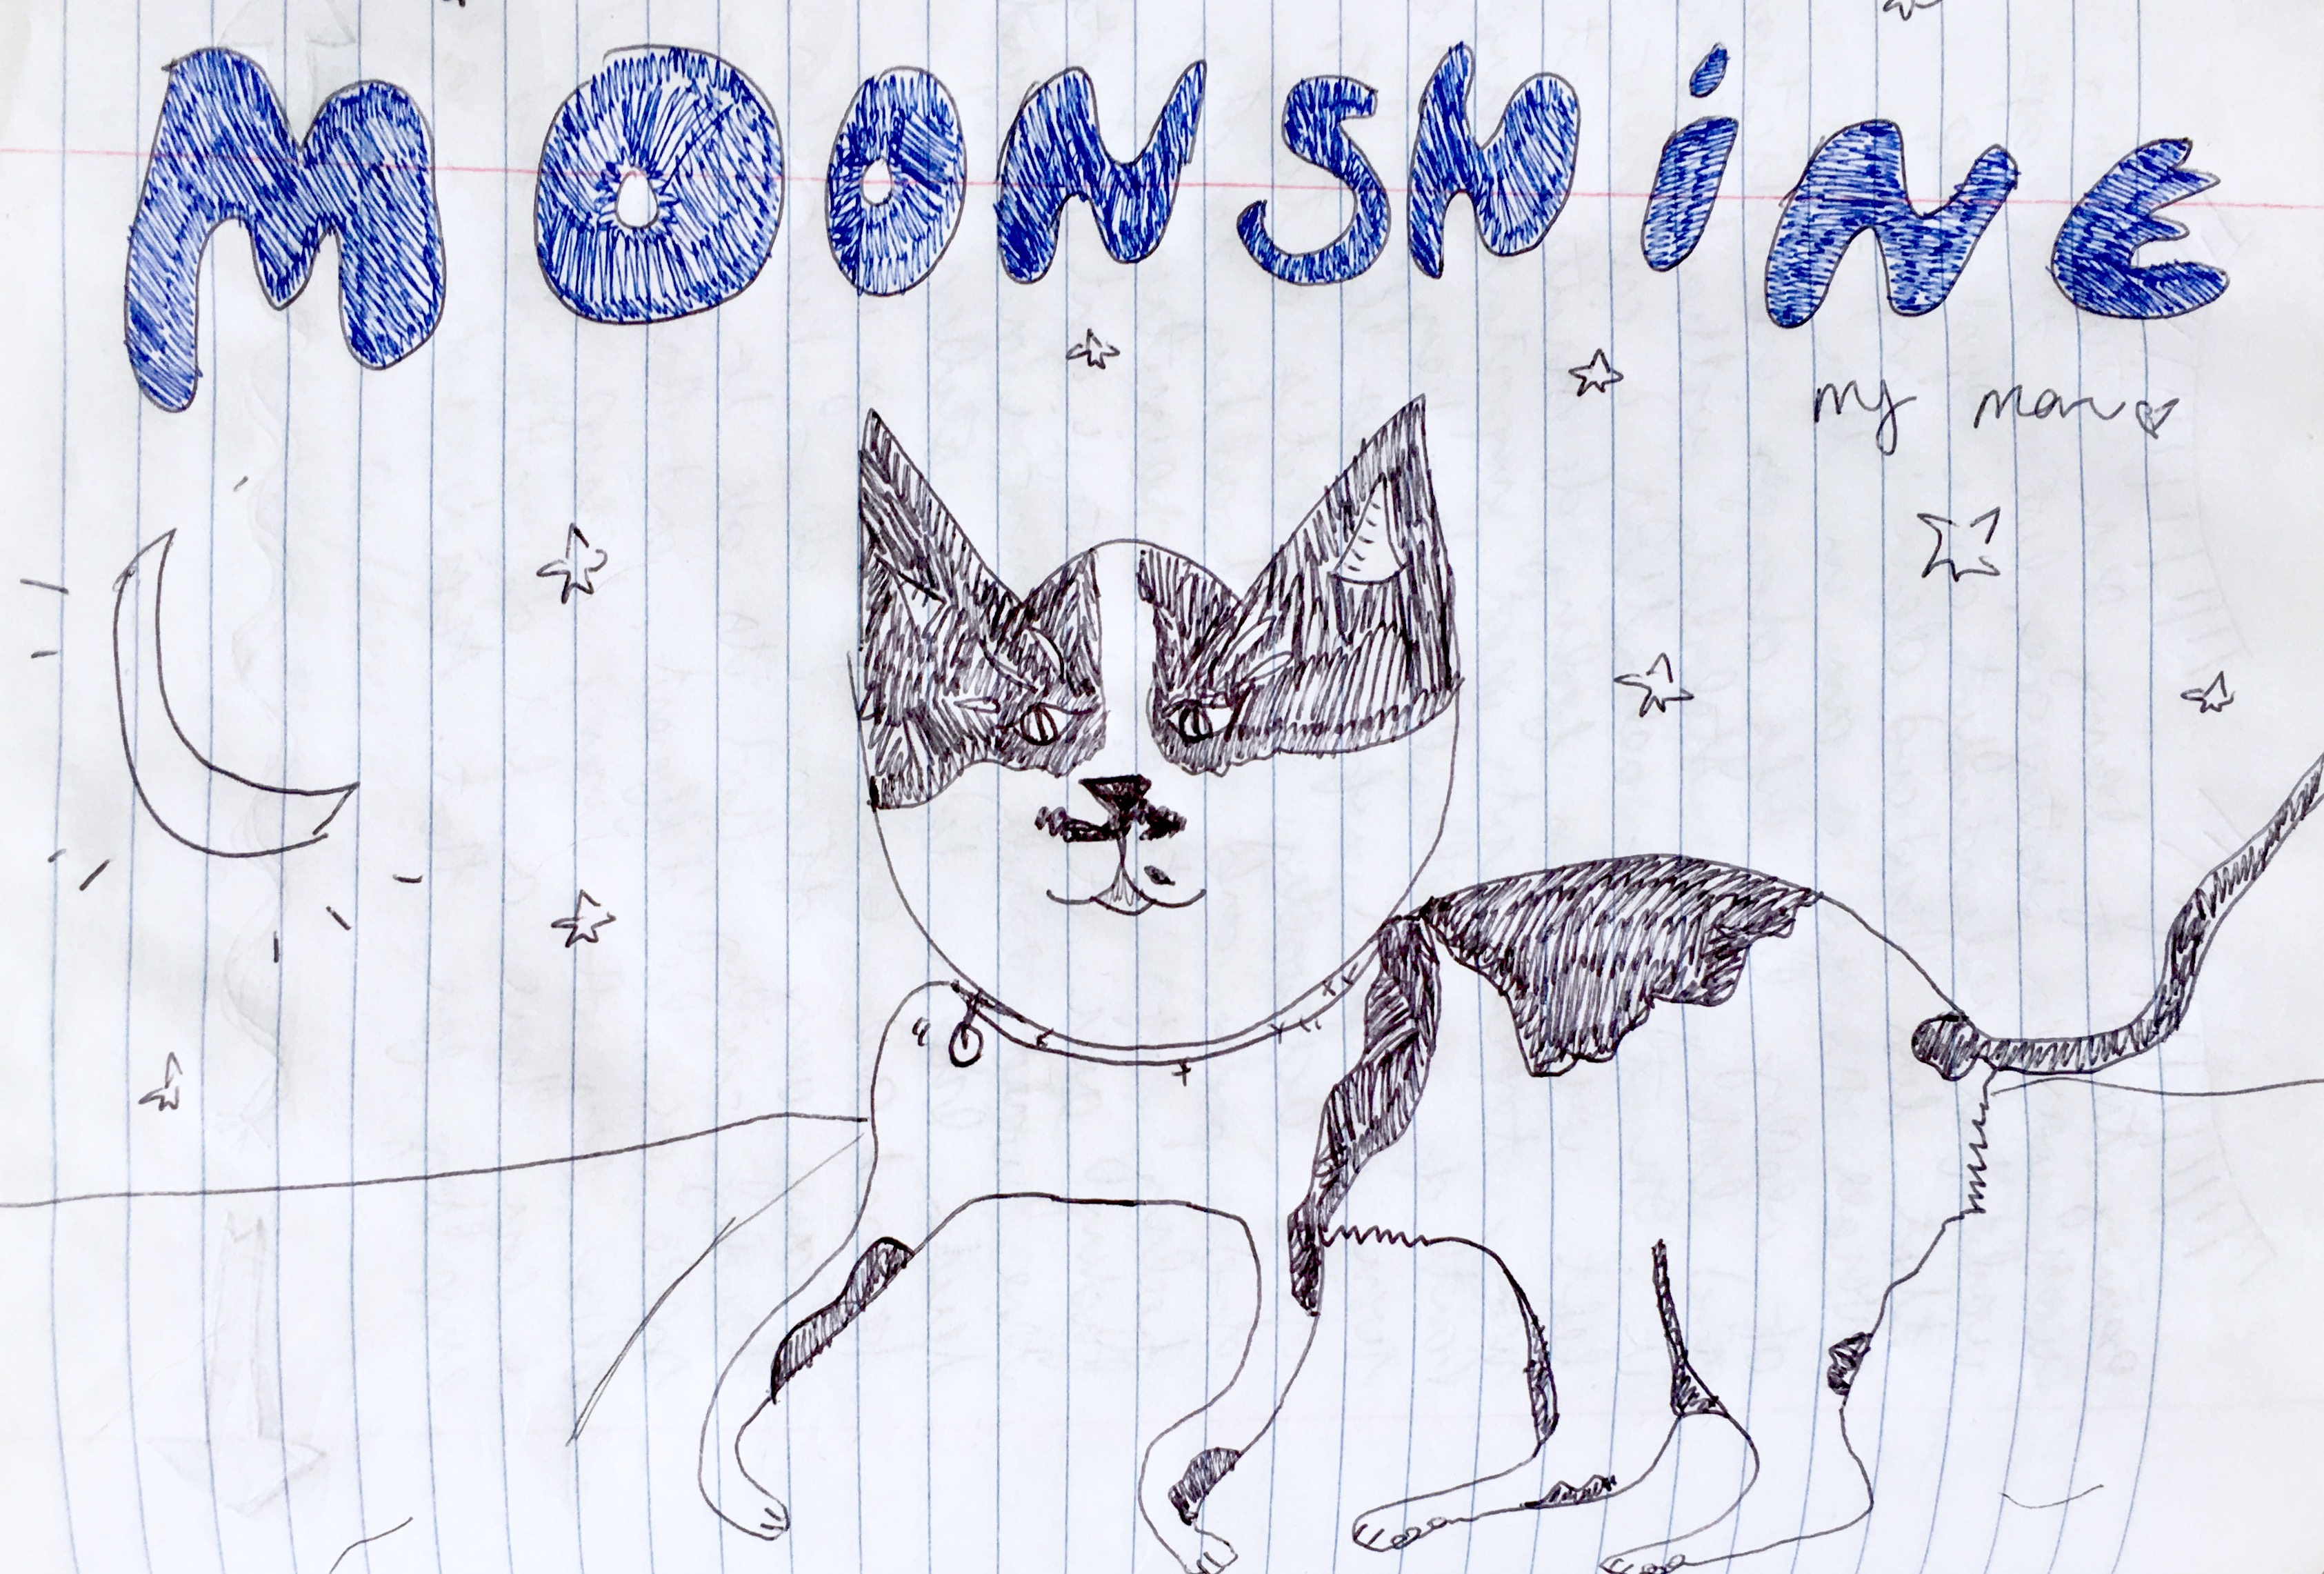 MOONSHiNE
my man